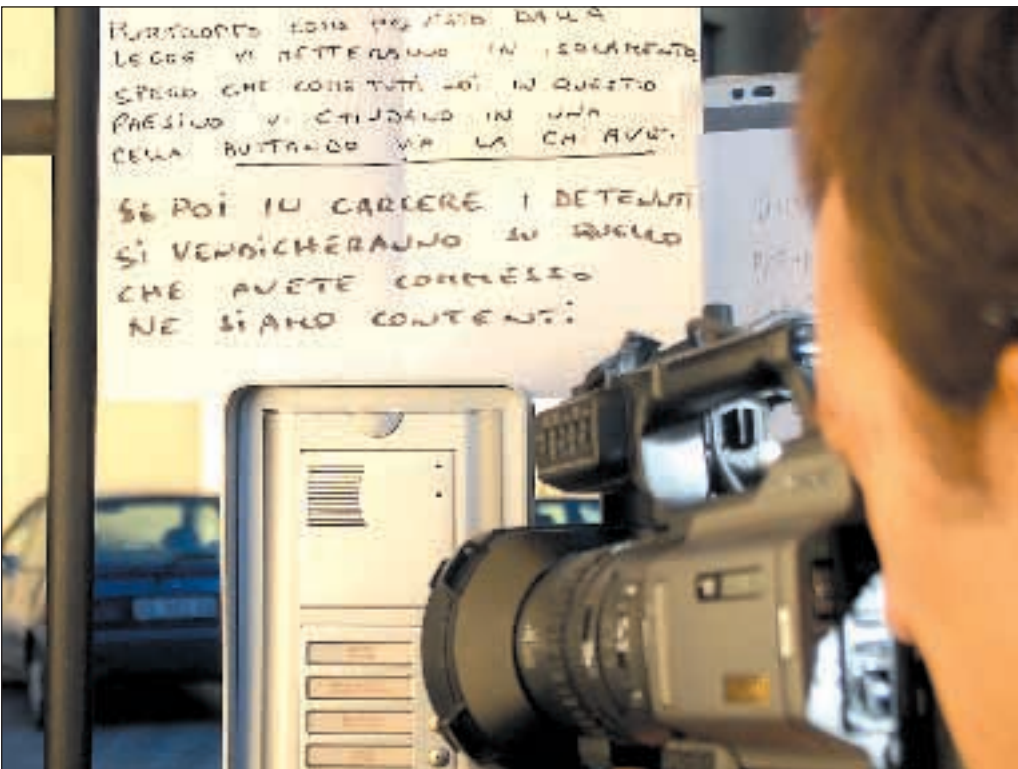 PURTROPPO COME PREVISTO DALLA
LEGGE VI METTERANNO IN ISOLAMENTO
SPERO CHE COME TUTTI NOI IN QUESTO
PAESINO VI CHIUDANO IN UNA
CELLA BUTTANDO VIA LA CHIAVE.
SE POI IN CARCERE I DETENUTI
SI VENDICHERANNO SU QUELLO
CHE AVETE COMMESSO
NE SIAMO CONTENTI